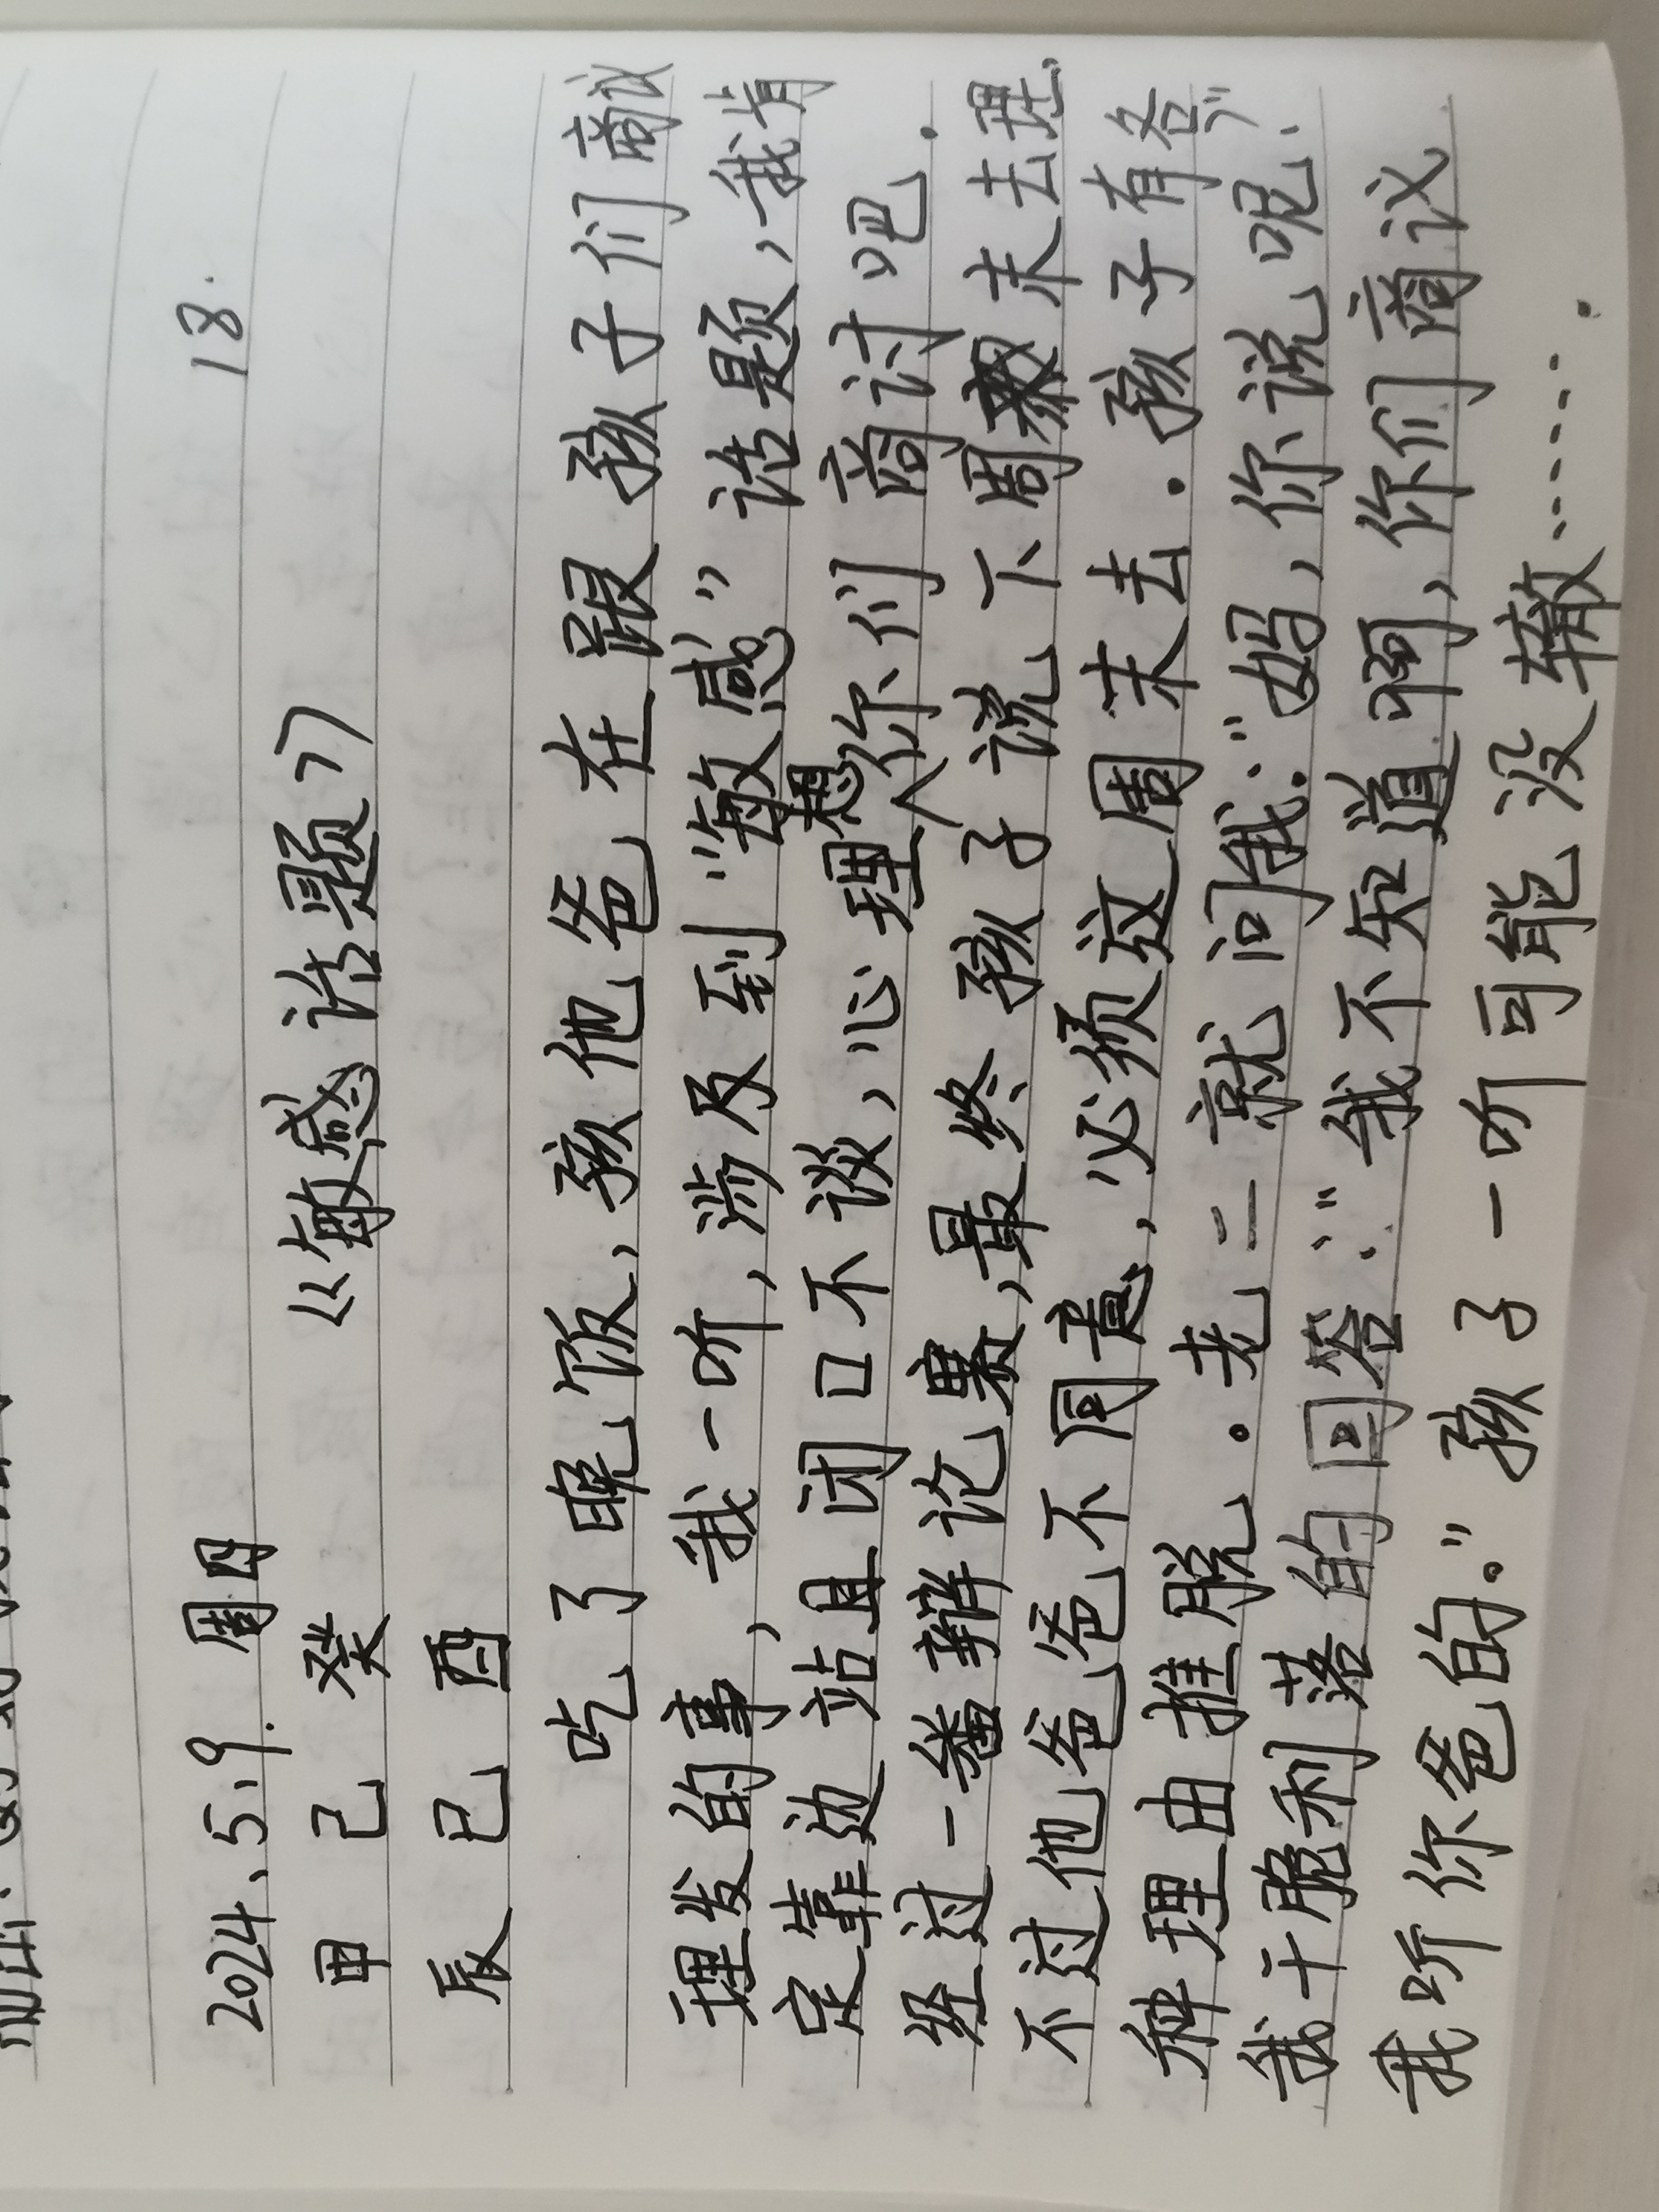 2024、5、9. 周四 18.
甲 己 癸 《敏感话题》
辰 巳 酉
吃了晚饭，孩他爸在跟孩子们商议
理发的事，我一听，涉及到“敏感”话题，我肯
定靠边站且闭口不谈，心理想你们商讨吧.
经过一番辩论赛，最终孩子说下周末去理.
不过他爸爸不同意，必须这周末去.孩子有各
种理由推脱。老二就问我：“妈，你说呢、”
我干脆利落的回答：“我不知道啊，你们商议
我听你爸的。”孩子一听可能没辙…….